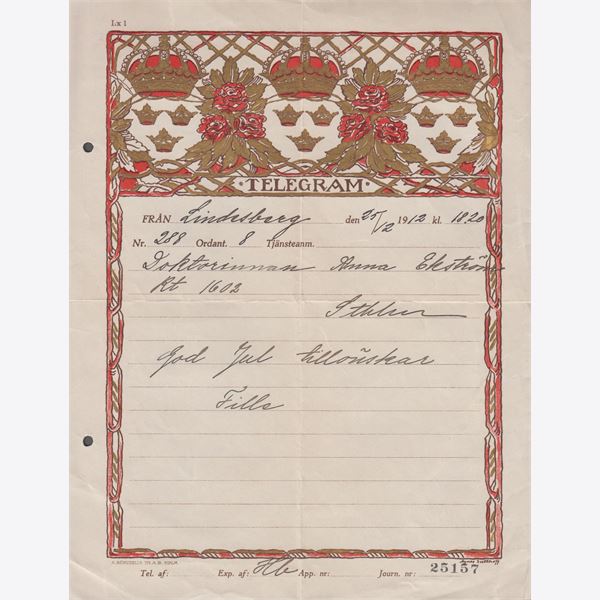 Lx 1
TELEGRAM
FRÅN Lindesberg den 25/12 1912 kl. 18.20
Nr. 288 Ordant. 8 Tjänsteanm.
Doktorinnan Anna Ekström
Rt 1602
Sthlm
God Jul tillönskar
Tel. af: Exp. af: Hb App. nr: Journ. nr: 25157